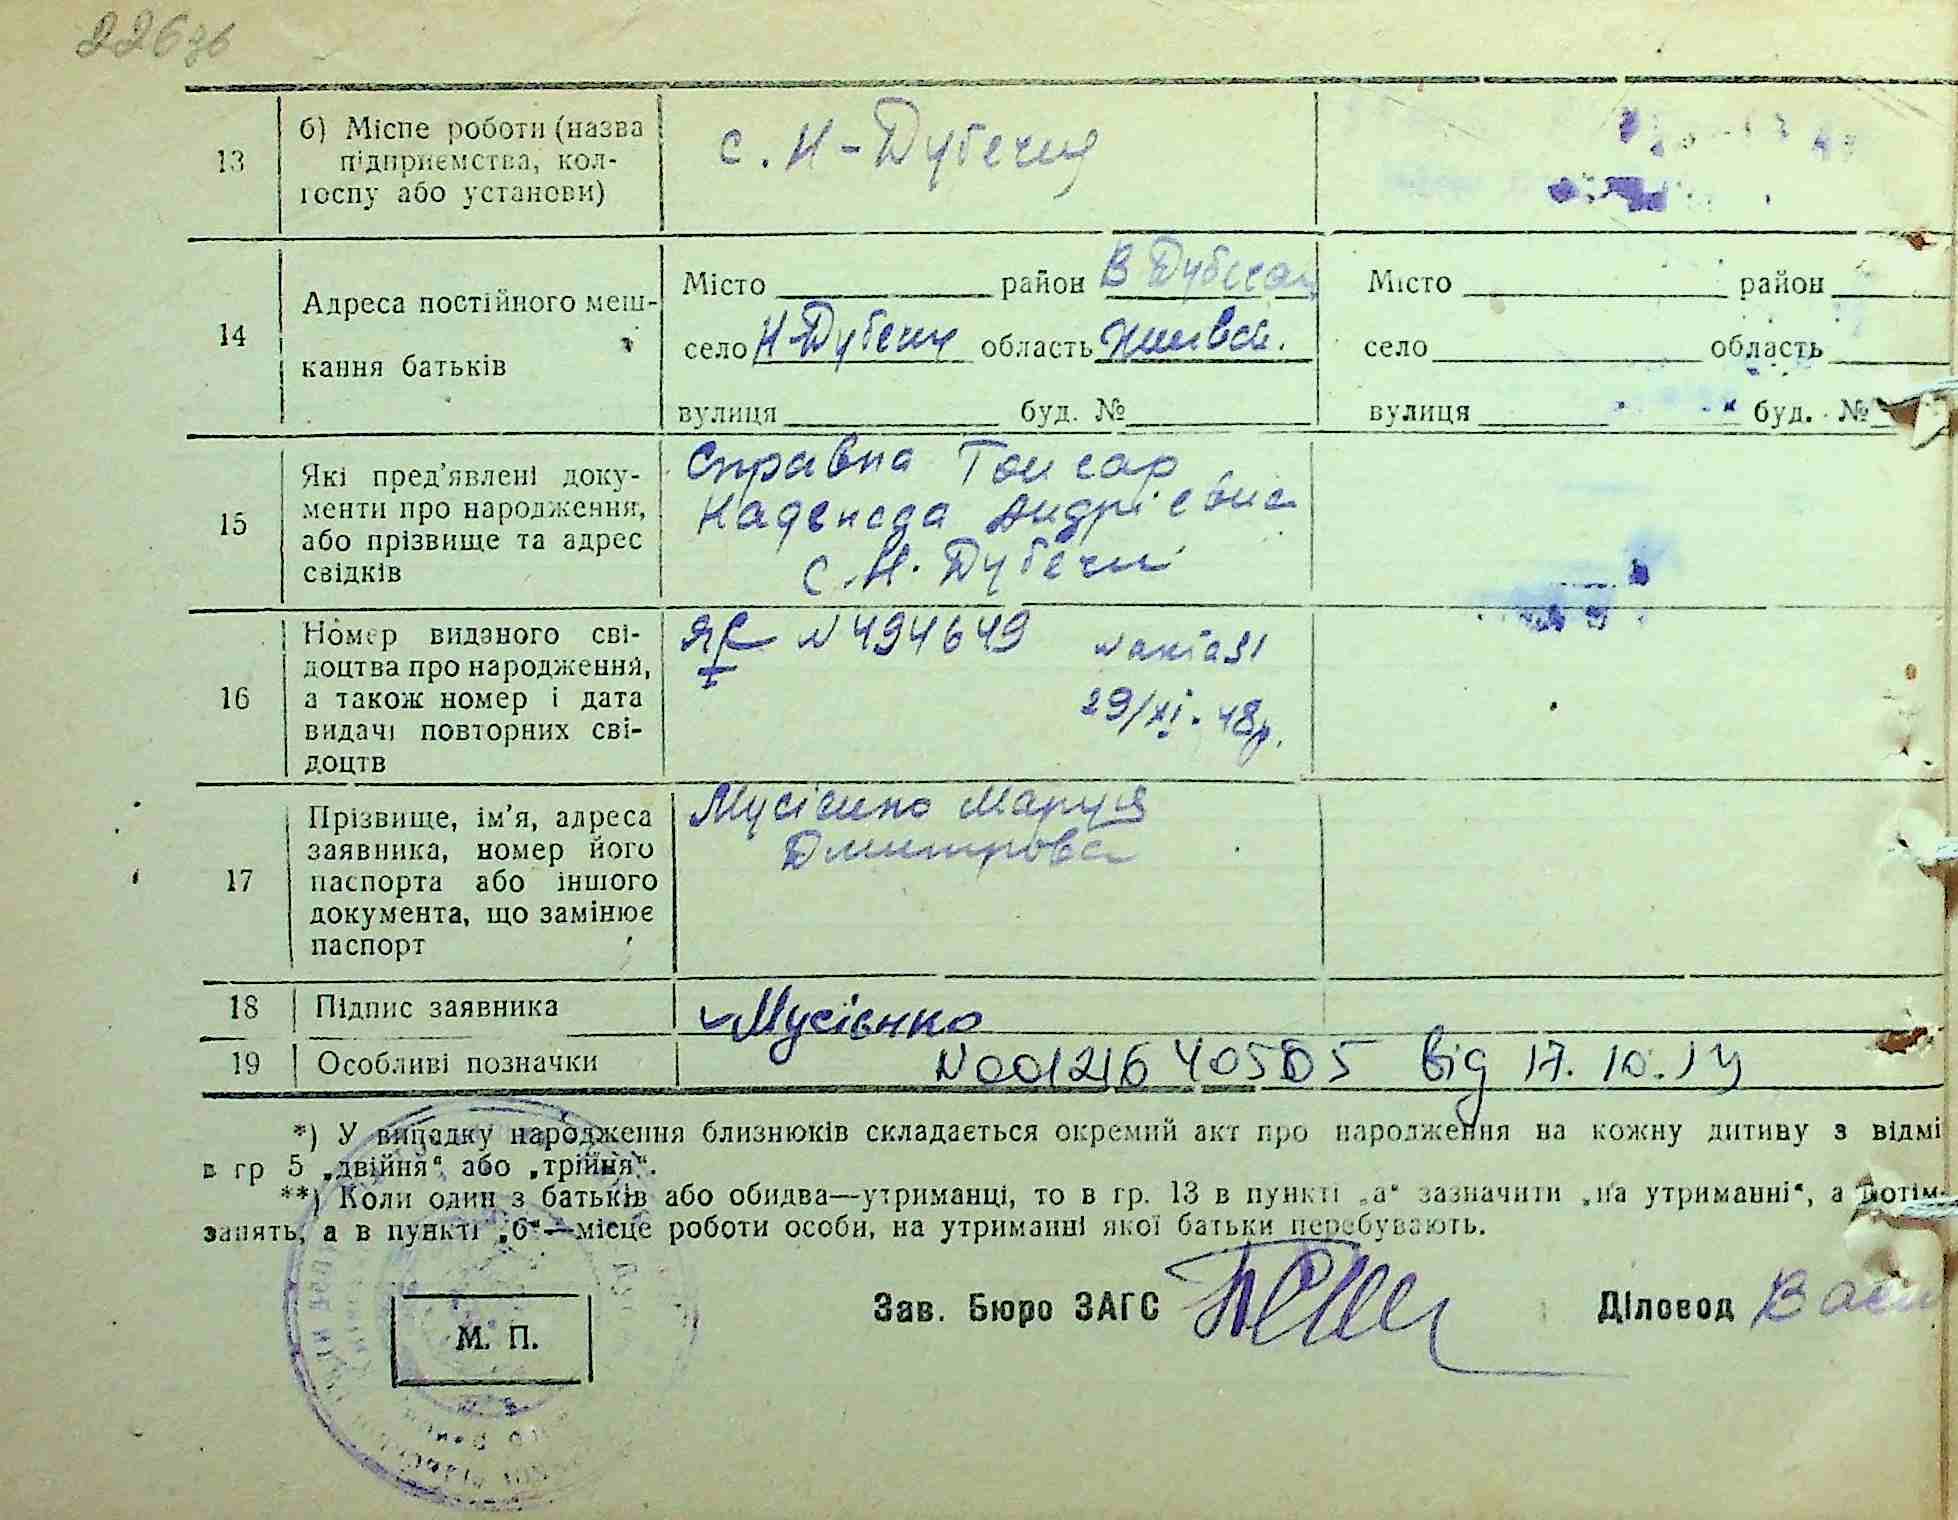 226 зв
13
б) Місце роботи (назва
підприємства, кол-
госпу або установи)
с. Н-Дубечня
14
Адреса постійного меш-
кання батьків
Місто район В Дубечан
село Н-Дубечня область
вулиця буд. №
Місто район
село область
вулиця буд. №
15
Які пред'явлені доку-
менти про народження,
або прізвище та адрес
свідків
Справка
Андрієвна
с. Н. Дубечня
16
Номер виданого сві-
доцтва про народження,
а також номер і дата
видачі повторних сві-
доцтв
ЯС N 494649
I
N акта 51
29/XI. 48р.
17
Прізвище, ім'я, адреса
заявника, номер його
паспорта або іншого
документа, що замінює
паспорт
Мусієнко Маруся
Дмитровна
18
Підпис заявника
Мусієнко
19
Особливі позначки
N 00121640505 від 17.10.14
*) У випадку народження близнюків складається окремий акт про народження на кожну дитину з відмі
в гр 5 „двійня“ або „трійня“.
**) Коли один з батьків або обидва—утриманці, то в гр. 13 в пункті „а“ зазначити „на утриманні“, а потім
занять, а в пункті „б“—місце роботи особи, на утриманні якої батьки перебувають.
Зав. Бюро ЗАГС
Діловод
М. П.